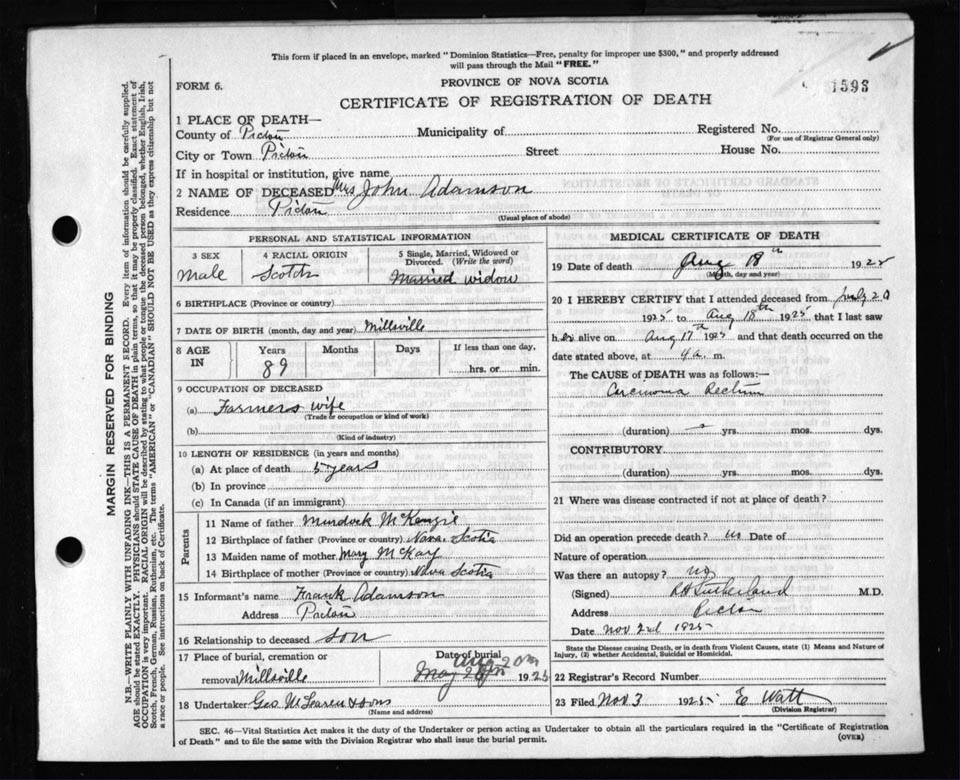 This form if placed in an envelope, marked "Dominion Statistics—Free, penalty for improper use $300," and properly addressed
will pass through the Mail "FREE."
PROVINCE OF NOVA SCOTIA
FORM 6.
1598
CERTIFICATE OF REGISTRATION OF DEATH
1 PLACE OF DEATH—
County of Pictou Municipality of Registered No.
(For use of Registrar General only)
City or Town Pictou Street House No.
If in hospital or institution, give name
2 NAME OF DECEASED Mrs John Adamson
Residence Pictou
(Usual place of abode)
PERSONAL AND STATISTICAL INFORMATION
3 SEX 4 RACIAL ORIGIN 5 Single, Married, Widowed or Divorced. (Write the word)
Male Scotch Married widow
6 BIRTHPLACE (Province or country)
7 DATE OF BIRTH (month, day and year) Millsville
8 AGE IN Years Months Days If less than one day,
89 hrs. or min.
9 OCCUPATION OF DECEASED
(a) Farmers wife
(Trade or occupation or kind of work)
(b)
(Kind of industry)
10 LENGTH OF RESIDENCE (in years and months)
(a) At place of death 5 years
(b) In province
(c) In Canada (if an immigrant)
Parents
11 Name of father Murdock McKenzie
12 Birthplace of father (Province or country) Nova Scotia
13 Maiden name of mother Mary McKay
14 Birthplace of mother (Province or country) Nova Scotia
15 Informant's name Frank Adamson
Address Pictou
16 Relationship to deceased son
17 Place of burial, cremation or Date of burial
removal Millsville Aug 20th 1925
18 Undertaker Geo McLaren & Sons
(Name and address)
MEDICAL CERTIFICATE OF DEATH
19 Date of death Aug 18th 1925
(Month, day and year)
20 I HEREBY CERTIFY that I attended deceased from July 20
1925 to Aug 18th 1925 that I last saw
her alive on Aug 17th 1925 and that death occurred on the
date stated above, at 9 a. m.
The CAUSE of DEATH was as follows:—
Carcinoma Rectum
(duration) yrs. mos. dys.
CONTRIBUTORY
(duration) yrs. mos. dys.
21 Where was disease contracted if not at place of death?
Did an operation precede death? no Date of
Nature of operation
Was there an autopsy? no
(Signed) Sutherland M.D.
Address Pictou
Date Nov 2nd 1925
State the Disease causing Death, or in death from Violent Causes, state (1) Means and Nature of
Injury, (2) whether Accidental, Suicidal or Homicidal.
22 Registrar's Record Number
23 Filed Nov 3 1925 E Watt
(Division Registrar)
SEC. 46—Vital Statistics Act makes it the duty of the Undertaker or person acting as Undertaker to obtain all the particulars required in the "Certificate of Registration
of Death" and to file the same with the Division Registrar who shall issue the burial permit.
(OVER)
MARGIN RESERVED FOR BINDING
N.B.—WRITE PLAINLY WITH UNFADING INK—THIS IS A PERMANENT RECORD. Every item of information should be carefully supplied.
AGE should be stated EXACTLY. PHYSICIANS should STATE CAUSE OF DEATH in plain terms, so that it may be properly classified. Exact statement of
OCCUPATION is very important. RACIAL ORIGIN will be described by stating to what people or tongue the deceased person belonged, whether English, Irish,
Scotch, French, German, Russian, Ruthenian, etc. The terms "AMERICAN" or "CANADIAN" SHOULD NOT BE USED as they express citizenship but not
a race or people. See instructions on back of Certificate.